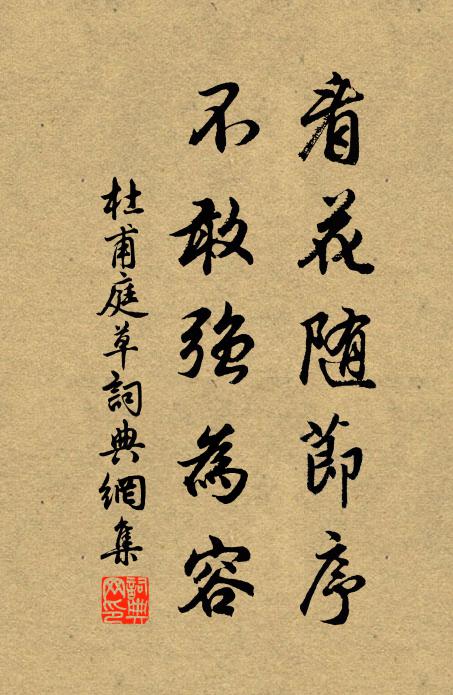 看花随節序
不敢強為容
杜甫庭草詞典網集
詞典网印